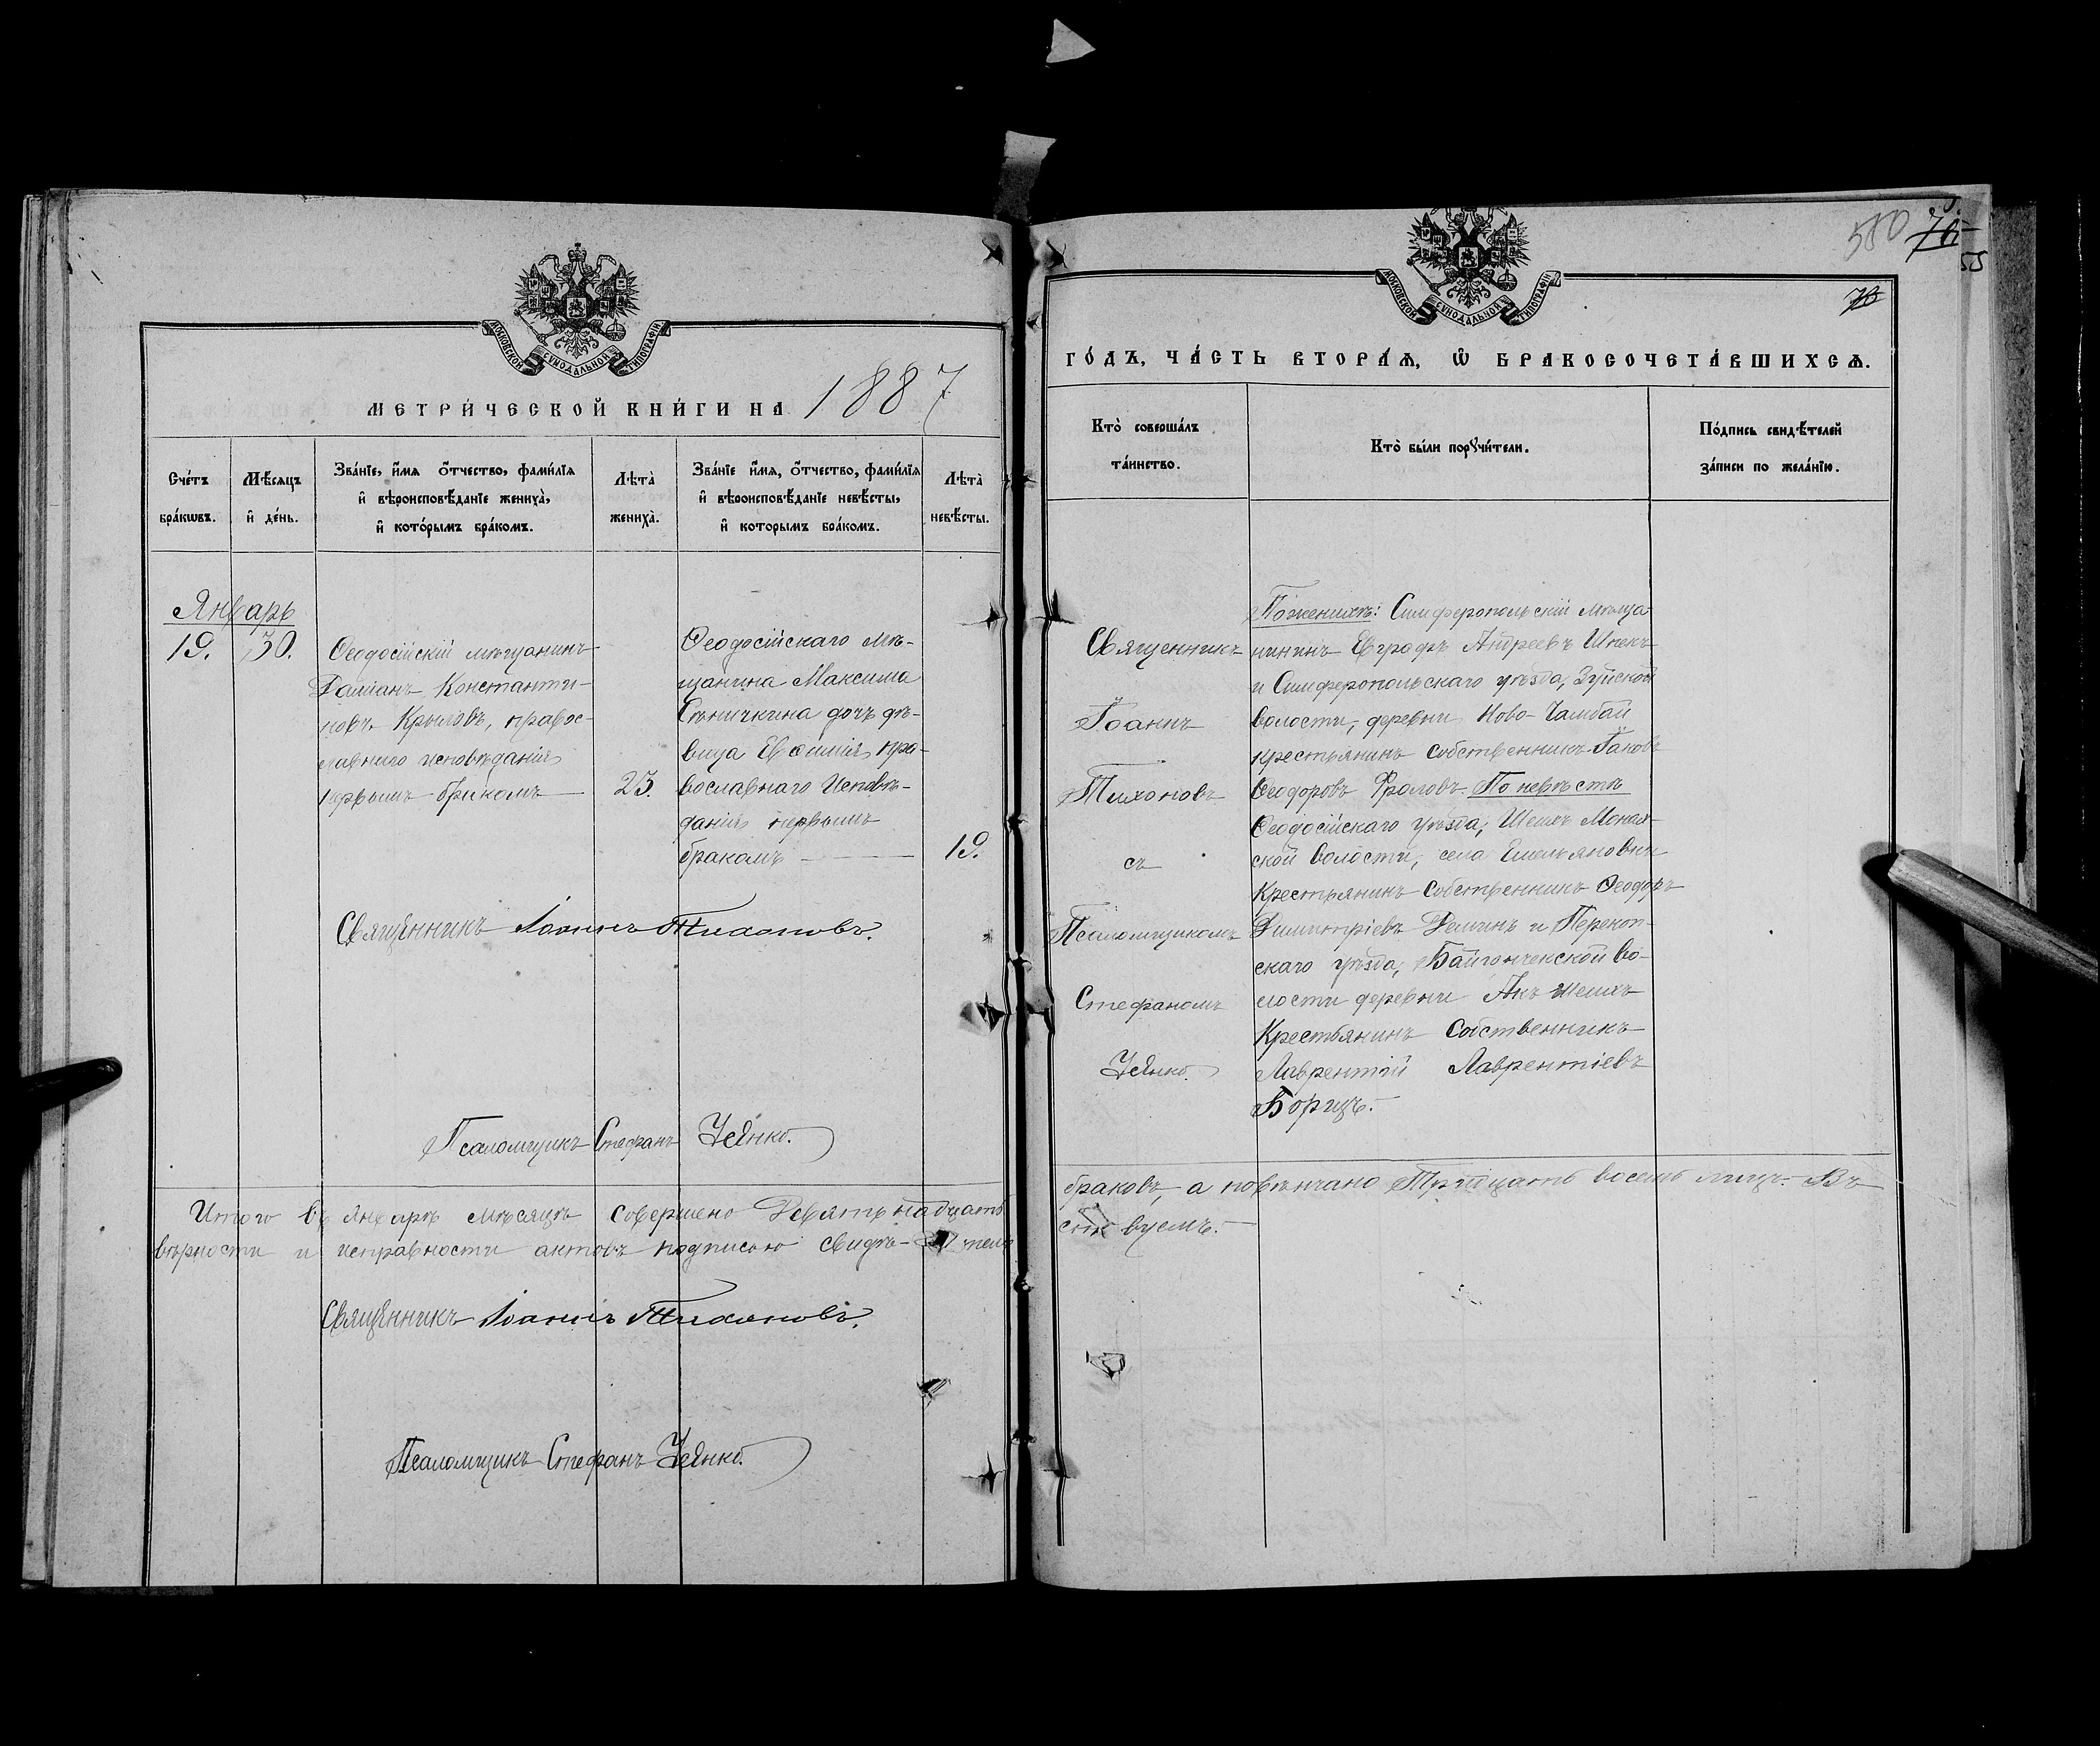 МОСКОВСКОЙ СѴНОДАЛЬНОЙ ТИПОГРАФІИ
МЕТРИ́ЧЕСКОЙ КНИ́ГИ НА 1887
Сче́тъ бра́кωвъ.
Мѣ́сяцъ и҆ де́нь.
Зва́нїе, и҆́мѧ ѻ҆́тчество, фами́лїѧ
и҆ вѣроисповѣ́данїе жениха̀,
и҆ кото́рымъ бра́комъ.
Лѣта̀ жениха̀.
Зва́нїе и҆́мѧ, ѻ҆́тчество, фами́лїѧ
и҆ вѣроисповѣ́данїе невѣ́сты,
и҆ которымъ бра́комъ.
Лѣта̀ невѣ́сты.
Январь
19.
30.
Ѳеодосійскій мѣщанинъ
Даміанъ Константи-
новъ Крыловъ, правос-
лавнаго исповѣданія
первымъ бракомъ
23.
Ѳеодосійскаго мѣ-
щанина Максима
дочь дѣ-
вица Евѳимія, пра-
вославнаго Исповѣ-
данія первымъ
бракомъ
19.
Священникъ Іоаннъ Тихоновъ.
Псаломщикъ Стефанъ
Итого въ Январѣ мѣсяцѣ совершено Девятьнадцать
вѣрности и исправности актовъ подписью свидѣ- тель
Священникъ Іоаннъ Тихоновъ.
Псаломщикъ Стефанъ
550 76
55
76
МОСКОВСКОЙ СѴНОДАЛЬНОЙ ТИПОГРАФІИ
ГО́ДЪ, ЧА́СТЬ ВТОРА́Ѧ, Ѡ҆ БРАКОСОЧЕТА́ВШИХСѦ.
Кто̀ соверша́лъ
та́инство.
Кто̀ бы́ли порꙋчи́тели.
По́дпись свидѣ́телей
за́писи по жела́нїю.
Священникъ
Іоаннъ
Тихоновъ
съ
Псаломщикомъ
Стефаномъ
По женихѣ: Симферопольскій мѣща-
нинъ Евграфъ Андреевъ
и Симферопольскаго уѣзда, Зуйской
волости, деревни Ново-
крестьянинъ собственникъ Іаковъ
Ѳеодоровъ Фроловъ. По невѣстѣ
Ѳеодосійскаго уѣзда, Шейхъ Монах-
ской волости, села Емельяновки
Крестьянинъ собственникъ Ѳеодоръ
Димитріевъ Деминъ и Перекоп-
скаго уѣзда, Байгончекской во-
лости деревни Акъ Шейхъ
Крестьянинъ Собственникъ
Лаврентій Лаврентіевъ
Борщъ.
браковъ, а повѣнчано Тридцать восемь лицъ. Въ
ствуемъ.